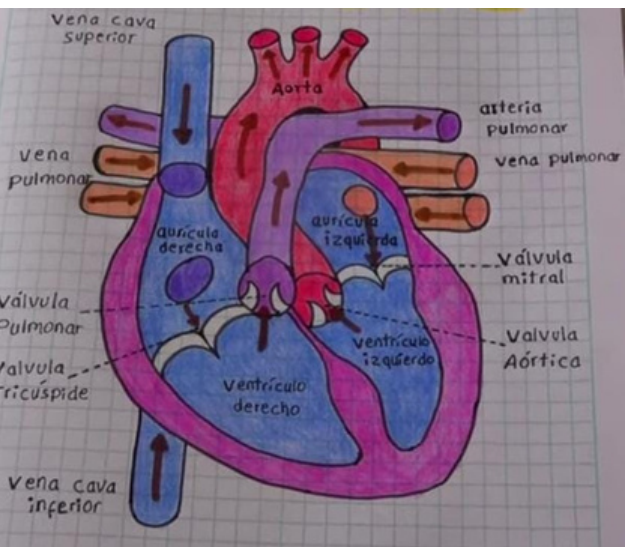 Vena cava
superior
Aorta
arteria
pulmonar
vena
pulmonar
vena pulmonar
aurícula
derecha
aurícula
izquierda
Válvula
mitral
Válvula
Pulmonar
ventrículo
izquierdo
Valvula
Aórtica
Valvula
tricúspide
ventrículo
derecho
vena cava
inferior